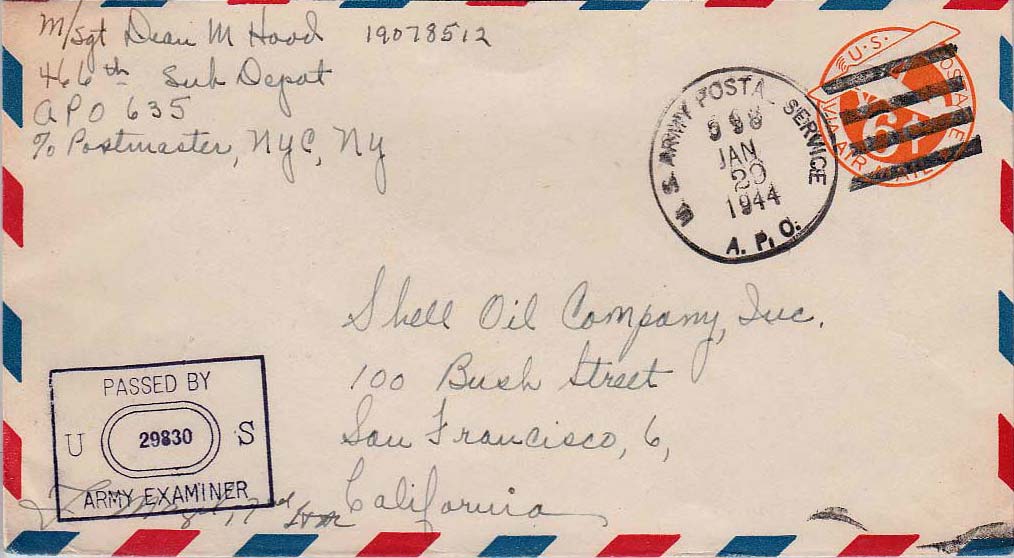 M/Sgt Dean M Hood 19078512
466th Sub Depot
APO 635
% Postmaster, NYC, NY
U.S. POSTAGE
6¢
VIA AIR MAIL
U. S. ARMY POSTAL SERVICE
JAN
20
1944
A. P. O.
Shell Oil Company, Inc.
100 Bush Street
San Francisco, 6,
California
PASSED BY
U 29830 S
ARMY EXAMINER